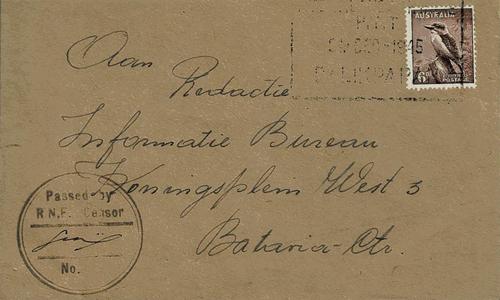 POST
DEC-1945
BALIKPAPAN
AUSTRALIA
6D
POSTAGE
Aan
Redactie
Informatie Bureau
Koningsplein West 3
Batavia-Ctr.
Passed by
R.N.F. Censor
No.